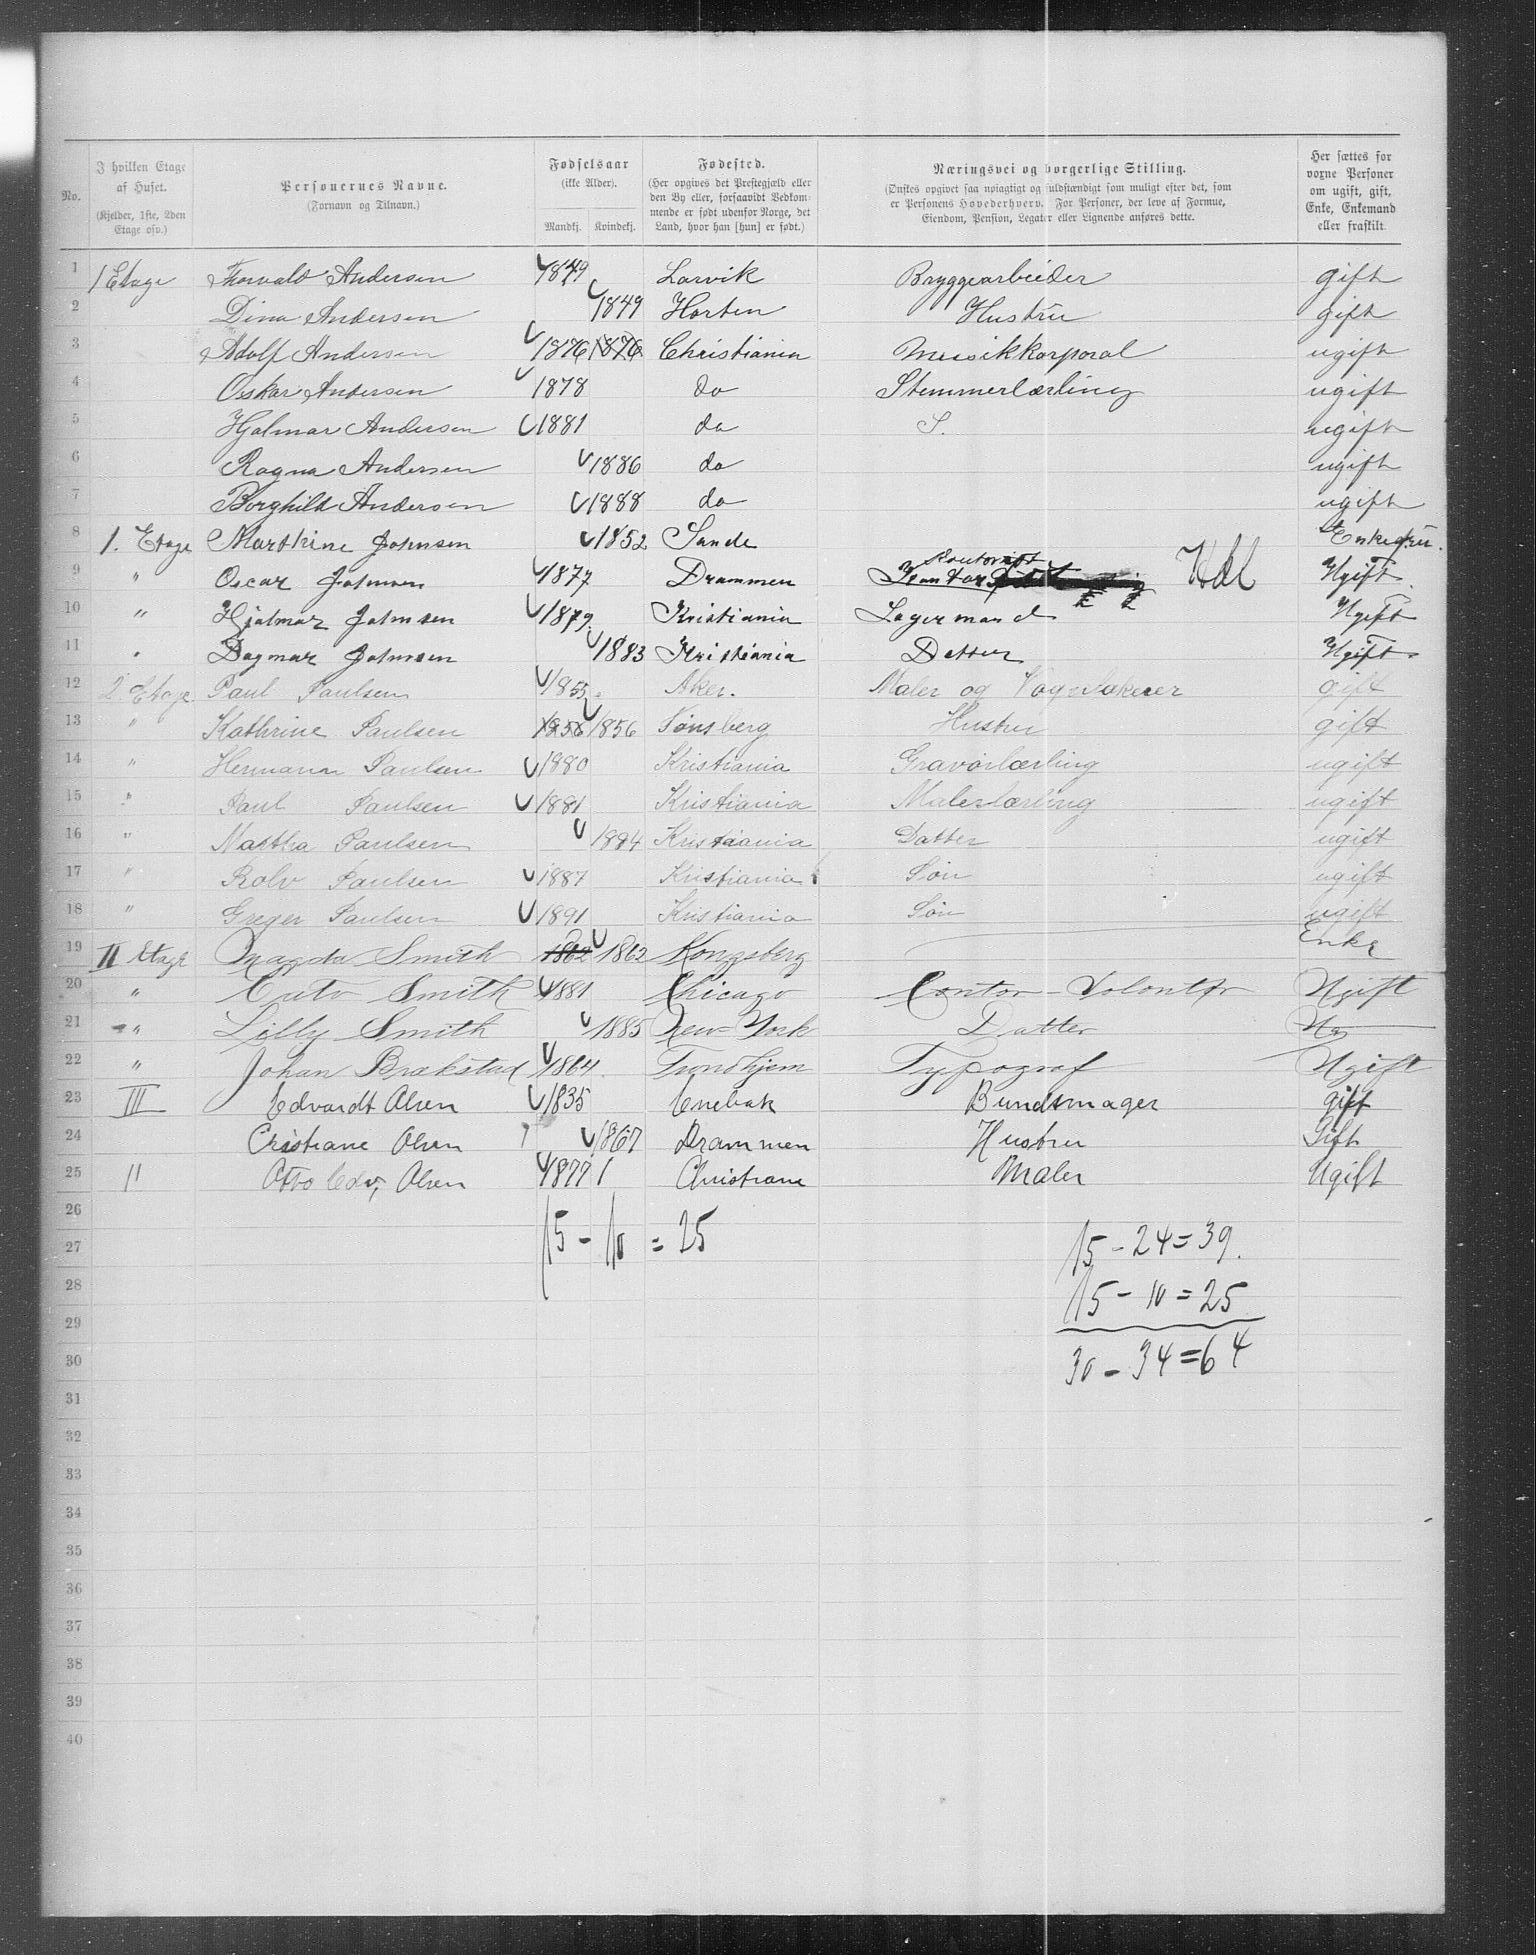 No.
I hvilken Etage af Huset. (Kjelder, 1ste, 2den Etage osv.)
Personernes Navne. (Fornavn og Tilnavn.)
Fødselsaar (ikke Alder). Mandkj. Kvindekj.
Fødested. (Her opgives det Prestegjæld eller den By eller, forsaavidt Vedkommende er født udenfor Norge, det Land, hvor han [hun] er født.)
Næringsvei og borgerlige Stilling. (Ønskes opgivet saa nøiagtigt og fuldstændigt som muligt efter det, som er Personens Hovederhverv. For Personer, der leve af Formue, Eiendom, Pension, Legater eller Lignende anføres dette.)
Her sættes for voxne Personer om ugift, gift, Enke, Enkemand eller fraskilt.
1 1 Etage Thorvald Andersen 1849 Larvik Bryggearbeider gift
2 Dina Andersen 1849 Horten Hustru gift
3 Adolf Andersen 1876 1876 Christiania Musikkorporal ugift
4 Osskar Andersen 1878 do Stemmerlærling ugift
5 Hjalmar Andersen 1881 do S. ugift
6 Ragna Andersen 1886 do ugift
7 Borghild Andersen 1888 do ugift
8 1. Etage Marthine Johnsen 1852 Sande Enkefru.
9 " Oscar Johnsen 1877 Drammen Kontorist Hdl Ugift.
10 " Hjalmar Johnsen 1879. Kristiania Lagermand Ugift
11 " Dagmar Johnsen 1883 Kristiania Datter Ugift
12 2. Etage Paul Paulsen 1855. Aker. Maler og gift
13 " Kathrine Paulsen 1856 1856 Tønsberg Hustru gift
14 " Hermann Paulsen 1880 Kristiania Gravørlærling ugift
15 " Paul Paulsen 1881 Kristiania Malerlærling ugift
16 " Martha Paulsen 1884 Kristiania Datter ugift
17 " Rolv Paulsen 1887 Kristiania Søn ugift
18 " Greger Paulsen 1891 Kristiania Søn ugift
19 II Etage Magda Smith 1862 1862 Kongsberg Enke
20 " Smith 1881 Chicago Contor-Volontør Ugift
21 " Lilly Smith 1885 New-York Datter Ug
22 " Johan Brakstad 1864. Trondhjem Typograf Ugift
23 III Edvardt Olsen 1835 Enebak Bundtmager gift
24 Cristiane Olsen 1867 Drammen Hustru Gift
25 11 Otto Edv, Olsen 1877 1 Christiane Maler Ugift
26
15 - 10 = 25
15 - 24 = 39.
27
28
15 - 10 = 25
29
30
30 - 34 = 64
31
32
33
34
35
36
37
38
39
40